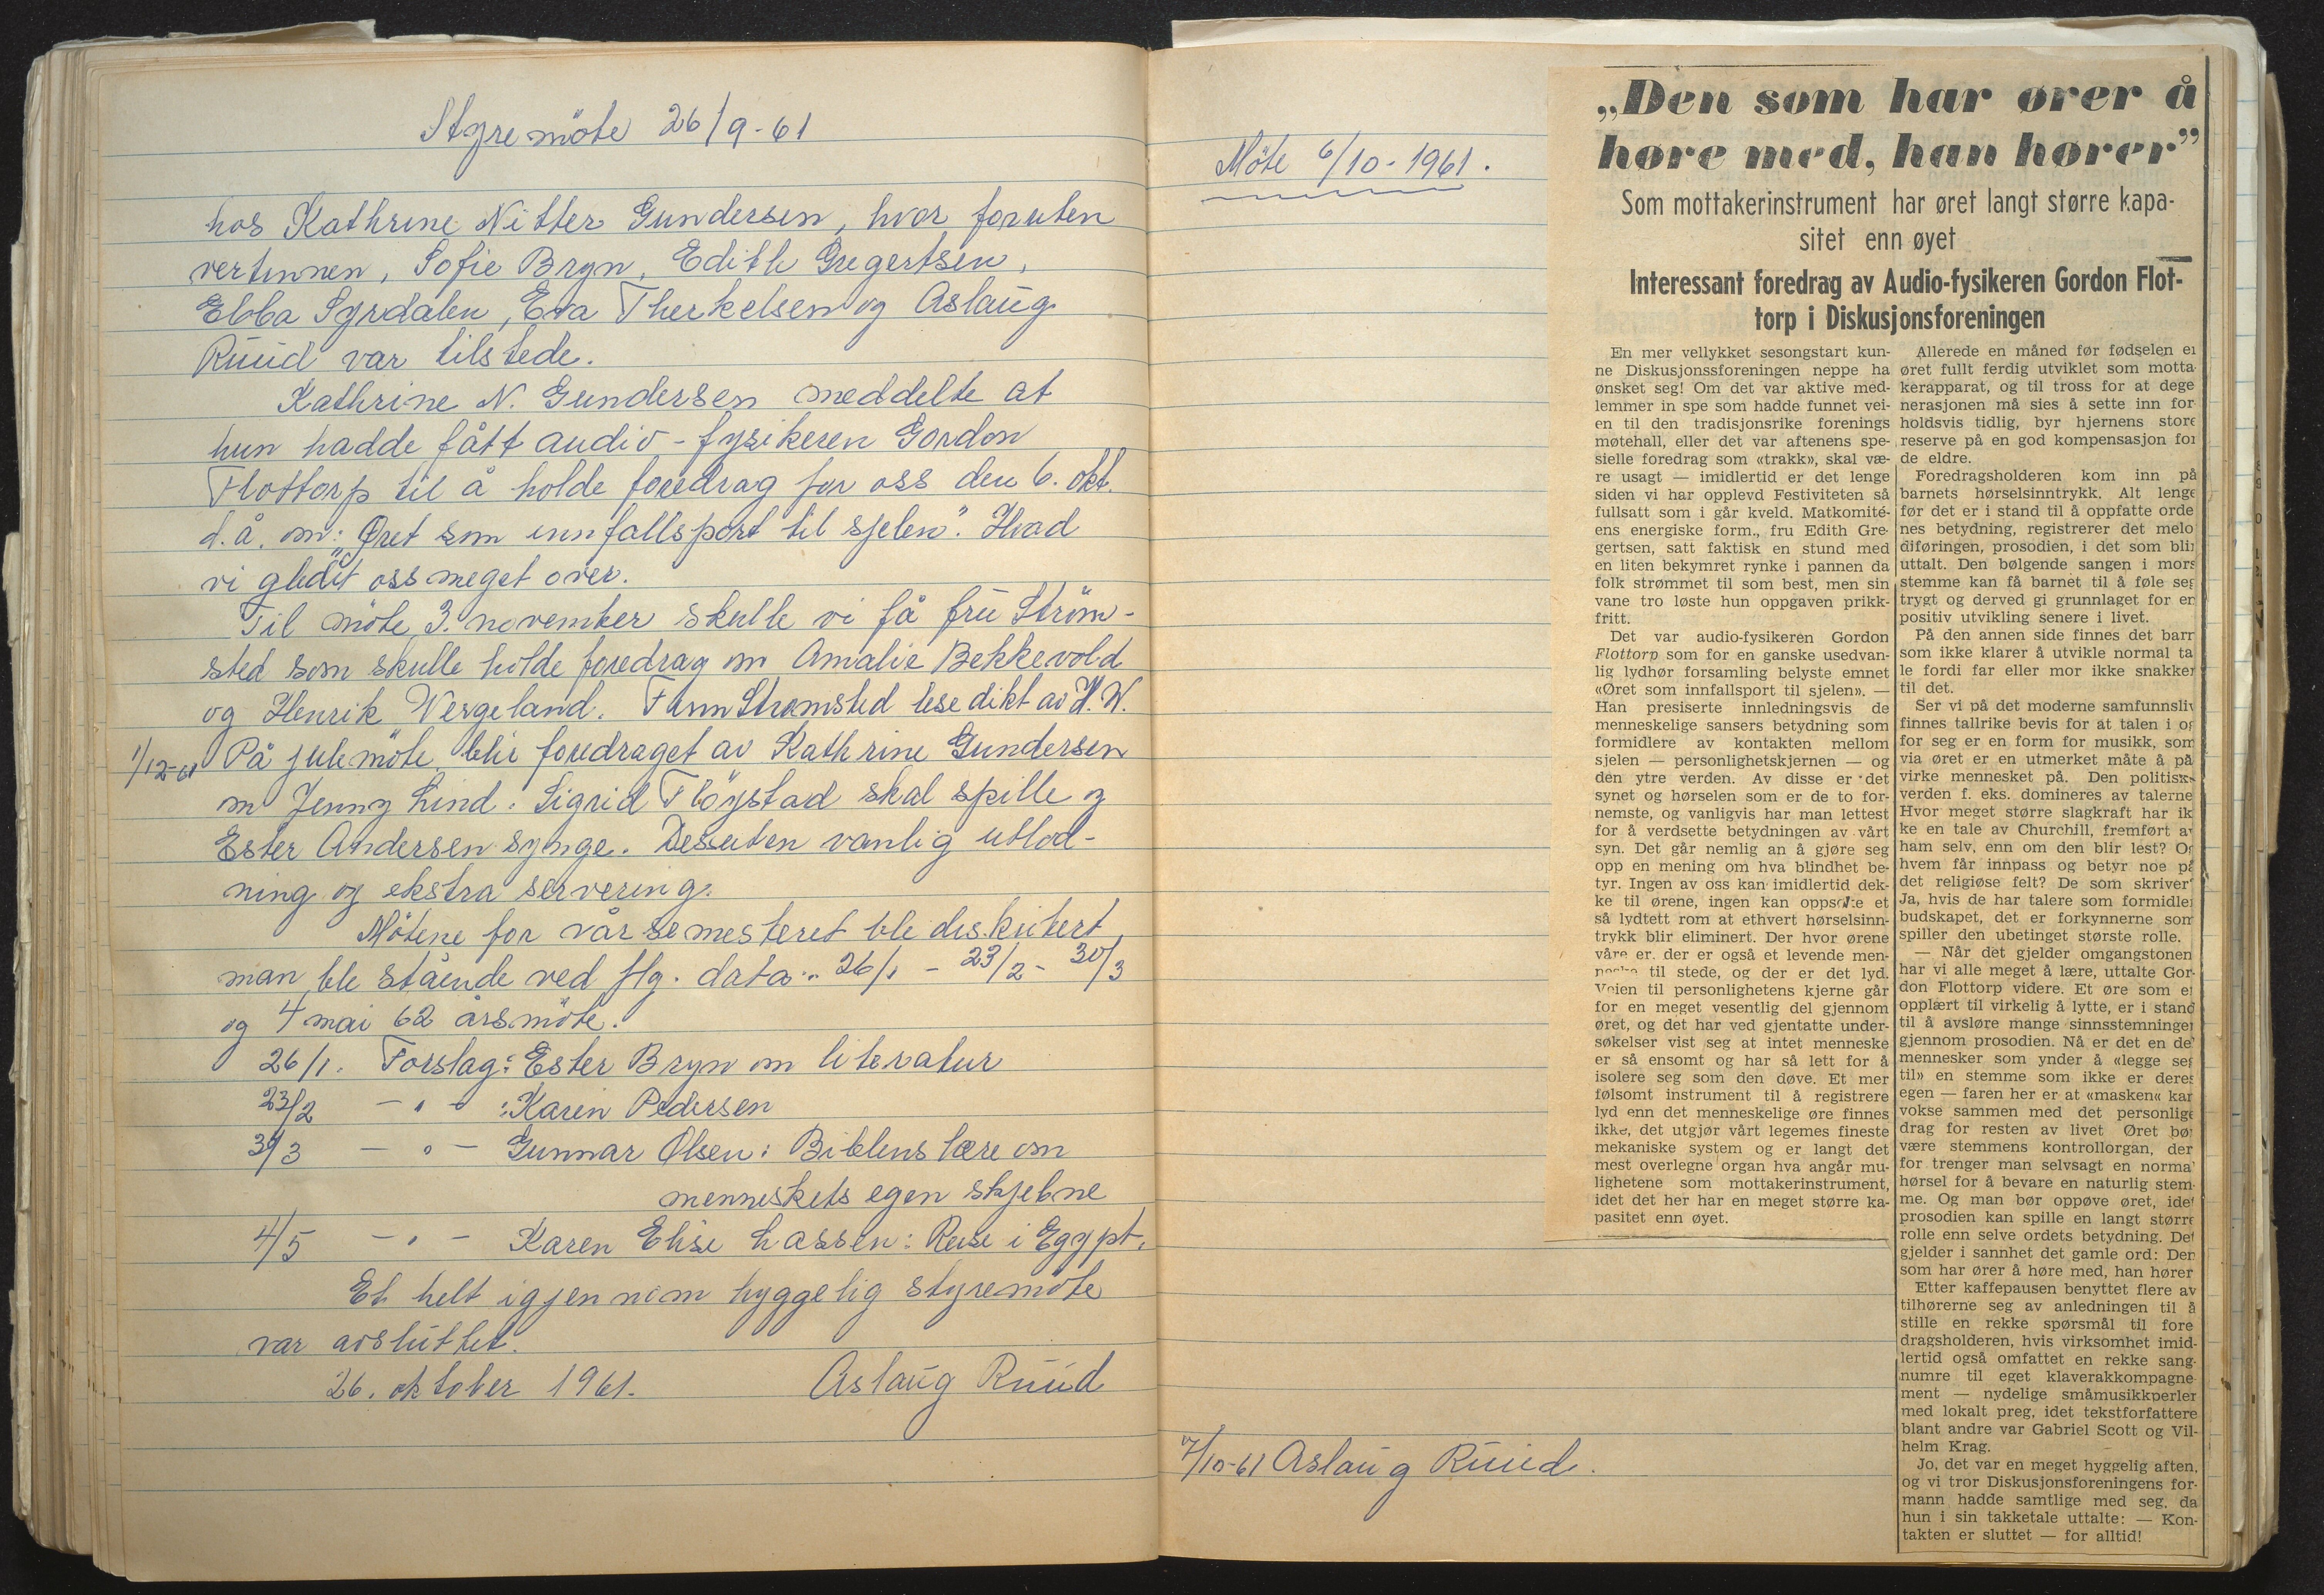 Styremöte 26/9-61
hos Kathrine Nitter Gundersen, hvor foruten
vertinnen, Sofie Bryn, Edith Gregertsen,
Ebba Syrdalen, Eva Therkelsen og Aslaug
Ruud var tilstede.
Kathrine N. Gundersen meddelte at
hun hadde fått audio-fysikeren Gordon
Flottorp til å holde foredrag for oss den 6. okt.
d.å. om: "Øret som innfallsport til sjelen". Hvad
vi gledet oss meget over.
Til möte 3. november skulle vi få fru Ström-
sted som skulle holde foredrag om Amalie Bekkevold
og Henrik Wergeland. Finn Strømsted lese dikt av H.W.
1/12-61 På julemöte blir foredraget av Kathrine Gundersen
om Jenny Lind. Sigrid Flöystad skal spille og
Ester Andersen synge. Desuten vanlig utlod-
ning og ekstra servering.
Mötene for vårsemesteret ble diskutert
man ble stående ved flg. data: 26/1 - 23/2 - 30/3
og 4 mai 62 årsmöte.
26/1. Forslag: Ester Bryn om literatur
23/2 - " - : Karen Pedersen
30/3 - " - Gunnar Olsen: Bibelens lære om
menneskets egen skjebne
4/5 - " - Karen Elise Lassen: Reise i Egypt.
Et helt igjennom hyggelig styremöte
var avsluttet.
26. oktober 1961. Aslaug Ruud
Möte 6/10-1961.
7/10-61 Aslaug Ruud.
„Den som har ører å
høre med, han hører”
Som mottakerinstrument har øret langt større kapa-
sitet enn øyet
Interessant foredrag av Audio-fysikeren Gordon Flot-
torp i Diskusjonsforeningen
En mer vellykket sesongstart kun-
ne Diskusjonssforeningen neppe ha
ønsket seg! Om det var aktive med-
lemmer in spe som hadde funnet vei-
en til den tradisjonsrike forenings
møtehall, eller det var aftenens spe-
sielle foredrag som «trakk», skal væ-
re usagt — imidlertid er det lenge
siden vi har opplevd Festiviteten så
fullsatt som i går kveld. Matkomité-
ens energiske form., fru Edith Gre-
gertsen, satt faktisk en stund med
en liten bekymret rynke i pannen da
folk strømmet til som best, men sin
vane tro løste hun oppgaven prikk-
fritt.
Det var audio-fysikeren Gordon
Flottorp som for en ganske usedvan-
lig lydhør forsamling belyste emnet
«Øret som innfallsport til sjelen». —
Han presiserte innledningsvis de
menneskelige sansers betydning som
formidlere av kontakten mellom
sjelen — personlighetskjernen — og
den ytre verden. Av disse er det
synet og hørselen som er de to for-
nemste, og vanligvis har man lettest
for å verdsette betydningen av vårt
syn. Det går nemlig an å gjøre seg
opp en mening om hva blindhet be-
tyr. Ingen av oss kan imidlertid dek-
ke til ørene, ingen kan oppsøke et
så lydtett rom at ethvert hørselsinn-
trykk blir eliminert. Der hvor ørene
våre er, der er også et levende men-
neske til stede, og der er det lyd.
Veien til personlighetens kjerne går
for en meget vesentlig del gjennom
øret, og det har ved gjentatte under-
søkelser vist seg at intet menneske
er så ensomt og har så lett for å
isolere seg som den døve. Et mer
følsomt instrument til å registrere
lyd enn det menneskelige øre finnes
ikke, det utgjør vårt legemes fineste
mekaniske system og er langt det
mest overlegne organ hva angår mu-
lighetene som mottakerinstrument,
idet det her har en meget større ka-
pasitet enn øyet.
Allerede en måned før fødselen er
øret fullt ferdig utviklet som motta
kerapparat, og til tross for at dege
nerasjonen må sies å sette inn for
holdsvis tidlig, byr hjernens store
reserve på en god kompensasjon for
de eldre.
Foredragsholderen kom inn på
barnets hørselsinntrykk. Alt lenge
før det er i stand til å oppfatte orde
nes betydning, registrerer det melo
diføringen, prosodien, i det som blir
uttalt. Den bølgende sangen i mors
stemme kan få barnet til å føle seg
trygt og derved gi grunnlaget for en
positiv utvikling senere i livet.
På den annen side finnes det barn
som ikke klarer å utvikle normal ta
le fordi far eller mor ikke snakker
til det.
Ser vi på det moderne samfunnsliv
finnes tallrike bevis for at talen i og
for seg er en form for musikk, som
via øret er en utmerket måte å på
virke mennesket på. Den politiske
verden f. eks. domineres av talerne
Hvor meget større slagkraft har ik
ke en tale av Churchill, fremført av
ham selv, enn om den blir lest? Og
hvem får innpass og betyr noe på
det religiøse felt? De som skriver?
Ja, hvis de har talere som formidler
budskapet, det er forkynnerne som
spiller den ubetinget største rolle.
— Når det gjelder omgangstonen
har vi alle meget å lære, uttalte Gor-
don Flottorp videre. Et øre som er
opplært til virkelig å lytte, er i stand
til å avsløre mange sinnsstemninger
gjennom prosodien. Nå er det en del
mennesker som ynder å «legge seg
til» en stemme som ikke er deres
egen — faren her er at «masken« kan
vokse sammen med det personlige
drag for resten av livet Øret bør
være stemmens kontrollorgan, der
for trenger man selvsagt en normal
hørsel for å bevare en naturlig stem-
me. Og man bør oppøve øret, idet
prosodien kan spille en langt større
rolle enn selve ordets betydning. Det
gjelder i sannhet det gamle ord: Den
som har ører å høre med, han hører
Etter kaffepausen benyttet flere av
tilhørerne seg av anledningen til å
stille en rekke spørsmål til fore
dragsholderen, hvis virksomhet imid-
lertid også omfattet en rekke sang-
numre til eget klaverakkompagne-
ment — nydelige småmusikkperler
med lokalt preg, idet tekstforfattere
blant andre var Gabriel Scott og Vil-
helm Krag.
Jo, det var en meget hyggelig aften,
og vi tror Diskusjonsforeningens for-
mann hadde samtlige med seg, da
hun i sin takketale uttalte: — Kon-
takten er sluttet — for alltid!